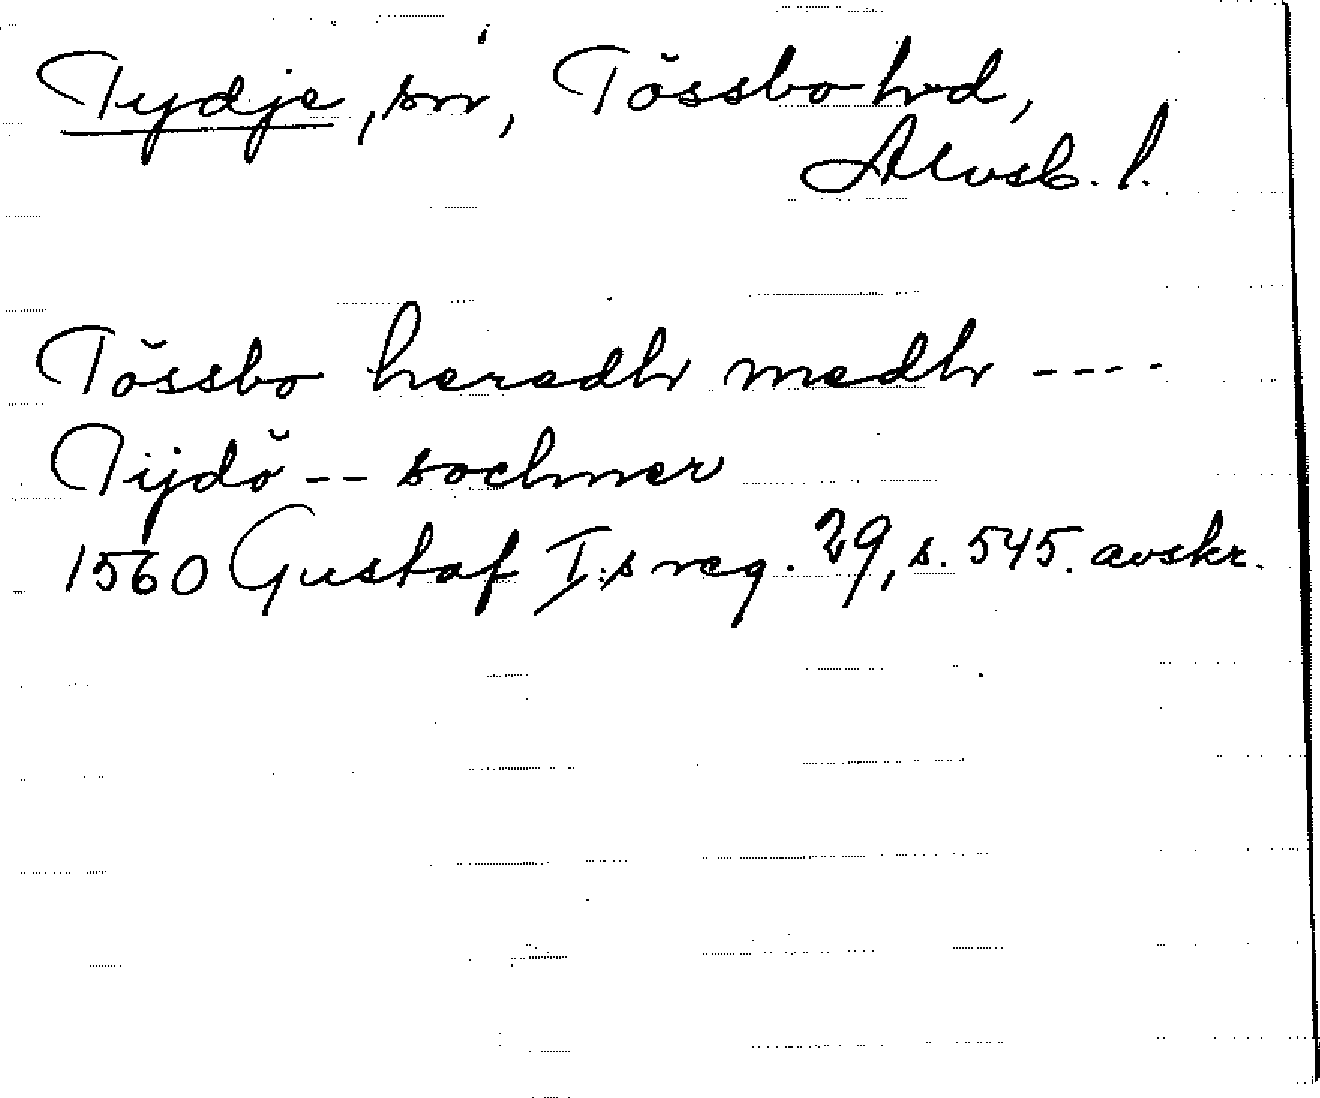 Tydje, sn, Tössbo hrd,
Älvsb. l.
Tössbo heredh medh ----
Tijdö -- sochner
1560 Gustaf I:s reg. 29, s. 545. avskr.